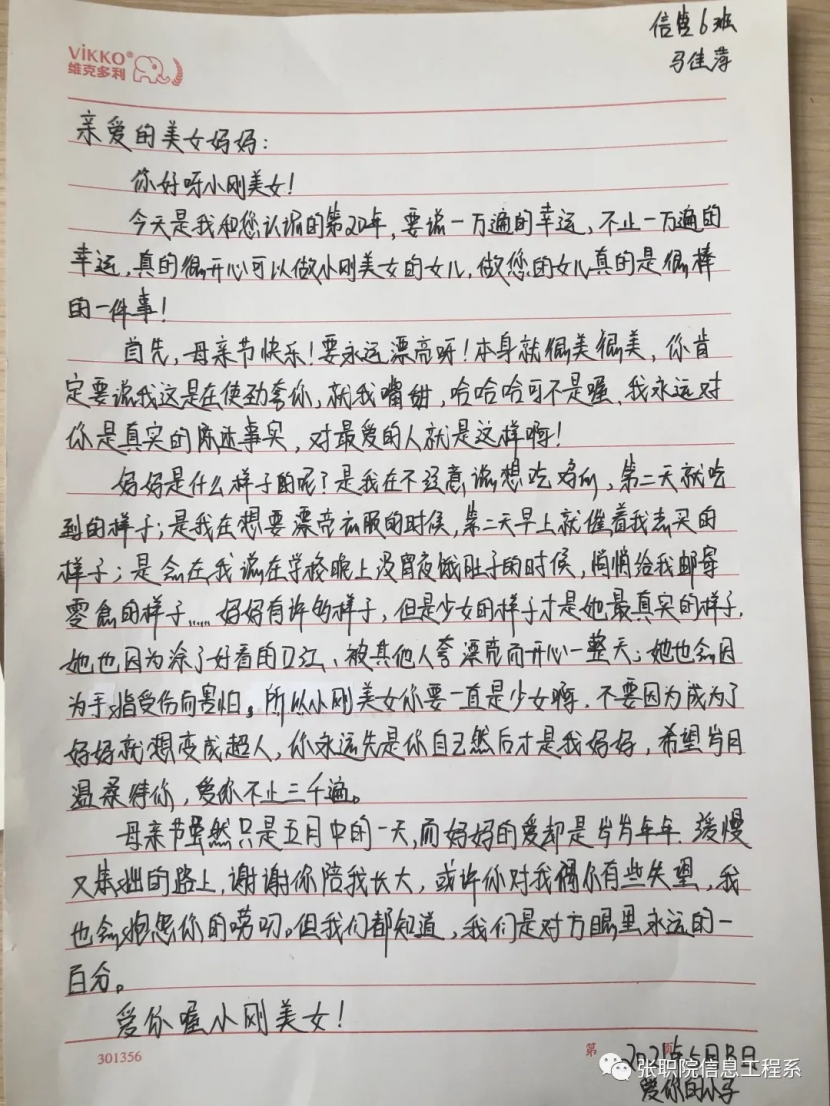 信息6班
马佳萍
VIKKO®
维克多利
亲爱的美女妈妈：
你好呀小刚美女！
今天是我和您认识的第20年，要说一万遍的幸运，不止一万遍的
幸运，真的很开心可以做小刚美女的女儿，做您的女儿真的是很棒
的一件事！
首先，母亲节快乐！要永远漂亮呀！本身就很美很美，你肯
定要说我这是在使劲夸你，就我嘴甜，哈哈哈可不是喔，我永远对
你是真实的陈述事实，对最爱的人就是这样啊！
妈妈是什么样子的呢？是我在不经意说想吃鸡爪，第二天就吃
到的样子；是我在想要漂亮衣服的时候，第二天早上就催着我去买的
样子；是会在我说在学校晚上没宵夜饿肚子的时候，悄悄给我邮寄
零食的样子……妈妈有许多样子，但是少女的样子才是她最真实的样子，
她也因为涂了好看的口红、被其他人夸漂亮而开心一整天；她也会因
为手指受伤而害怕。所以小刚美女你要一直是少女啊，不要因为成为了
妈妈就想变成超人，你永远先是你自己然后才是我妈妈，希望岁月
温柔待你，爱你不止三千遍。
母亲节虽然只是五月中的一天，而妈妈的爱却是岁岁年年．缓慢
又笨拙的路上，谢谢你陪我长大，或许你对我偶尔有些失望，我
也会抱怨你的唠叨。但我们都知道，我们是对方眼里永远的一
百分。
爱你喔小刚美女！
301356
第
2021年5月
张职院信息工程系
爱你的小子